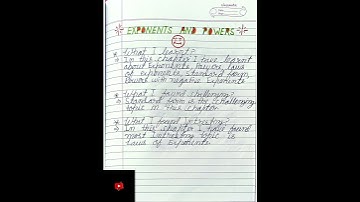 EXPONENTS AND POWERS
* What I learnt?
→ In this chapter I have learnt
about Exponents, Powers, Laws
of exponents, Standard form,
Powers with negative Exponents
* What I found Challenging?
→ Standard form is the challenging
topic in this chapter
* What I found Intresting?
→ In this chapter I have found
most Intresting topic is
Laws of Exponents